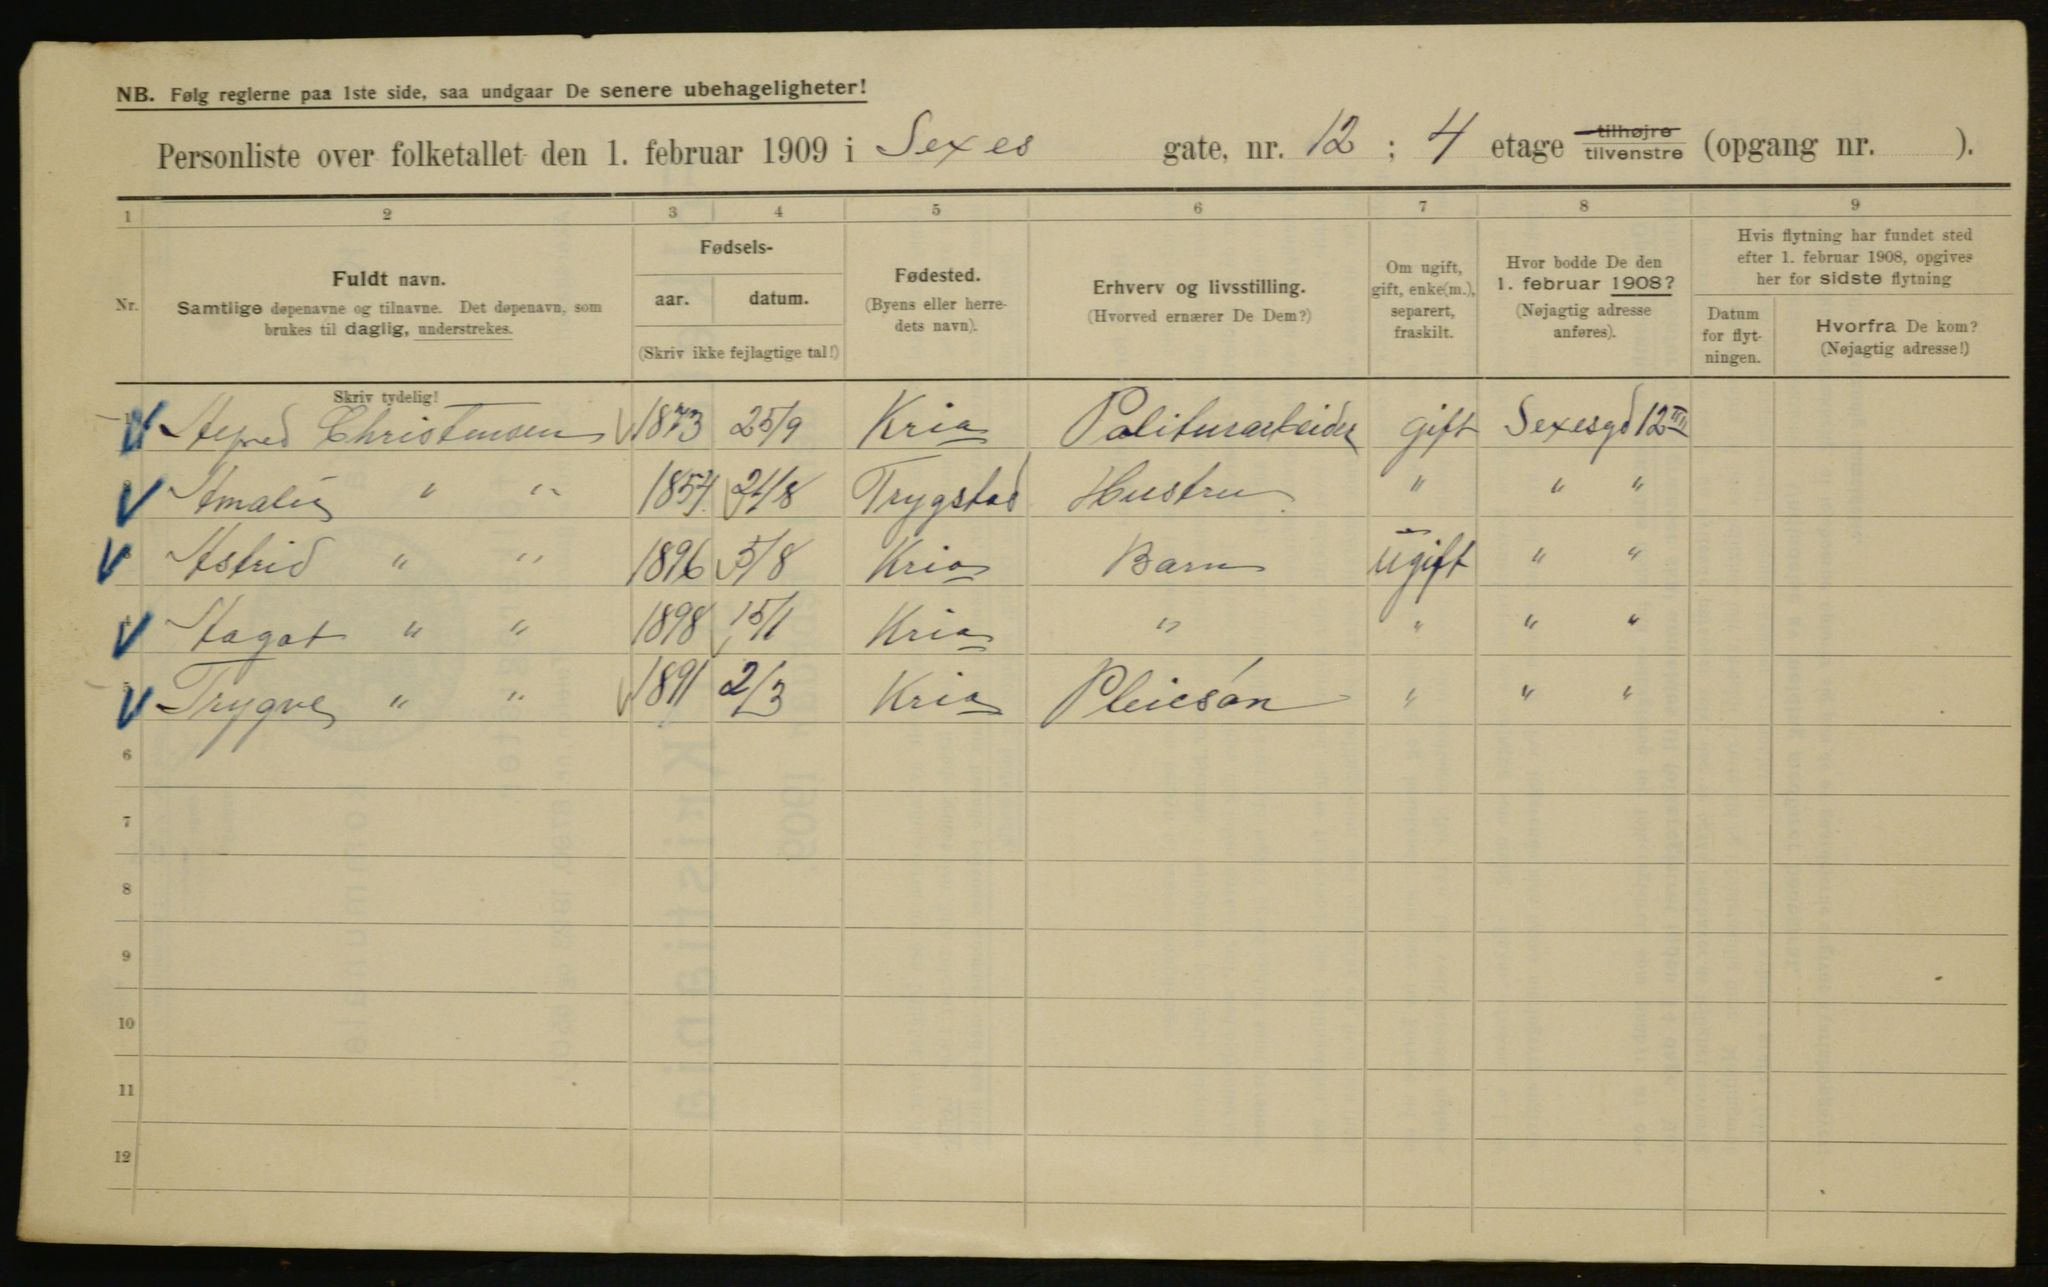 NB. Følg reglerne paa 1ste side, saa undgaar De senere ubehageligheter!
Personliste over folketallet den 1. februar 1909 i Sexes gate, nr. 12 ; 4 etage tilhøjre tilvenstre (opgang nr. ).
1 2 3 4 5 6 7 8 9
Nr.
Fuldt navn.
Samtlige døpenavne og tilnavne. Det døpenavn, som
brukes til daglig, understrekes.
Fødsels-
aar. datum.
(Skriv ikke fejlagtige tal!)
Fødested.
(Byens eller herre-
dets navn).
Erhverv og livsstilling.
(Hvorved ernærer De Dem?)
Om ugift,
gift, enke(m.),
separert,
fraskilt.
Hvor bodde De den
1. februar 1908?
(Nøjagtig adresse
anføres).
Hvis flytning har fundet sted
efter 1. februar 1908, opgives
her for sidste flytning
Datum
for flyt-
ningen.
Hvorfra De kom?
(Nøjagtig adresse!)
Skriv tydelig!
1 Alfred Christensen 1873 25/9 Kria Politurarbeider gift Sexesgd 12 IIII
2 Amalie " " 1857 21/8 Trygstad Hustru " " "
3 Astrid " " 1896 5/8 Kria Barn ugift " "
4 Aagot " " 1898 15/1 Kria " " " "
5 Trygve " " 1891 2/3 Kria Pleiesøn " " "
6
7
8
9
10
11
12